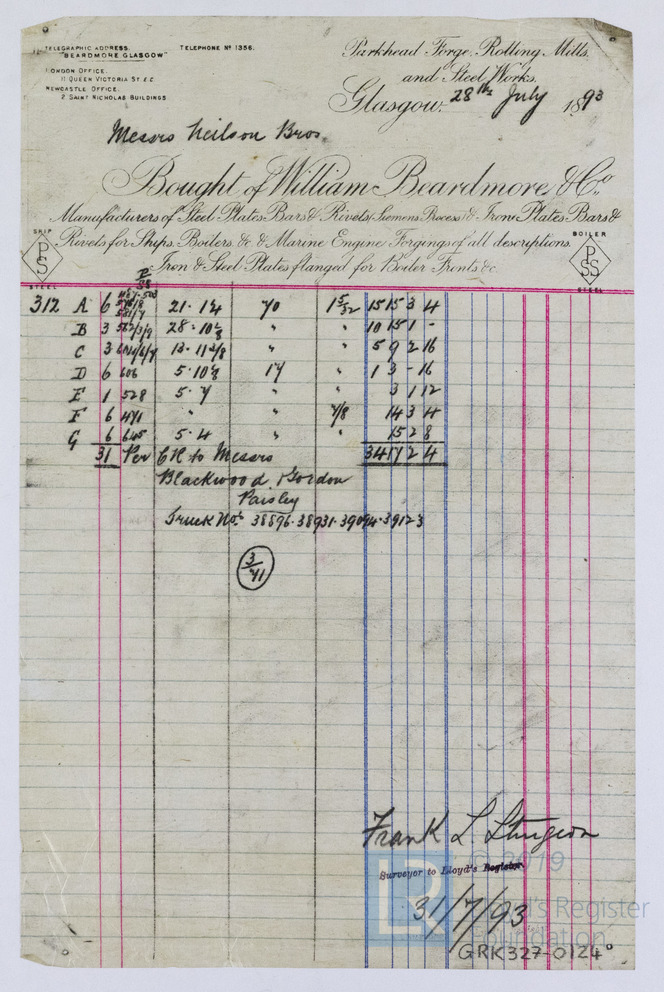 TELEGRAPHIC ADDRESS.
"BEARDMORE GLASGOW"
TELEPHONE Nº 1356.
LONDON OFFICE.
11 QUEEN VICTORIA ST E.C
NEWCASTLE OFFICE.
2 SAINT NICHOLAS BUILDINGS
Parkhead Forge, Rolling Mills,
and Steel Works.
Glasgow, 28th July 1893
Messrs Neilson Bros.
Bought of William Beardmore, & Co.
Manufacturers of Steel Plates Bars & Rivets, (Siemens Process) & Iron Plates, Bars &
Rivets for Ships, Boilers, &c. & Marine Engine Forgings of all descriptions.
Iron & Steel Plates flanged for Boiler Fronts &c.
SHIP
PSS
STEEL
BOILER
PSS
STEEL
312 A 6 21·1¼ 70 15/32 15 15 3 4
B 3 28·10⅛ " " 10 15 1 -
C 3 13·11⅜ " " 5 9 2 16
D 6 606 5·10⅛ 17 " 1 3 - 16
E 1 528 5·7 " " 3 1 12
F 6 471 " " 7/8 14 3 4
G 6 645 5·4 " " 15 2 8
31 Per CR to Messrs 34 17 2 4
Blackwood, Gordon
Paisley
Truck Nos 38896·38931·39094·39123
3/41
Frank L. Sturgeon
Surveyor to Lloyd's Register.
31/7/93
LR
© 2019
Lloyd's Register
Foundation
GRK327-0124